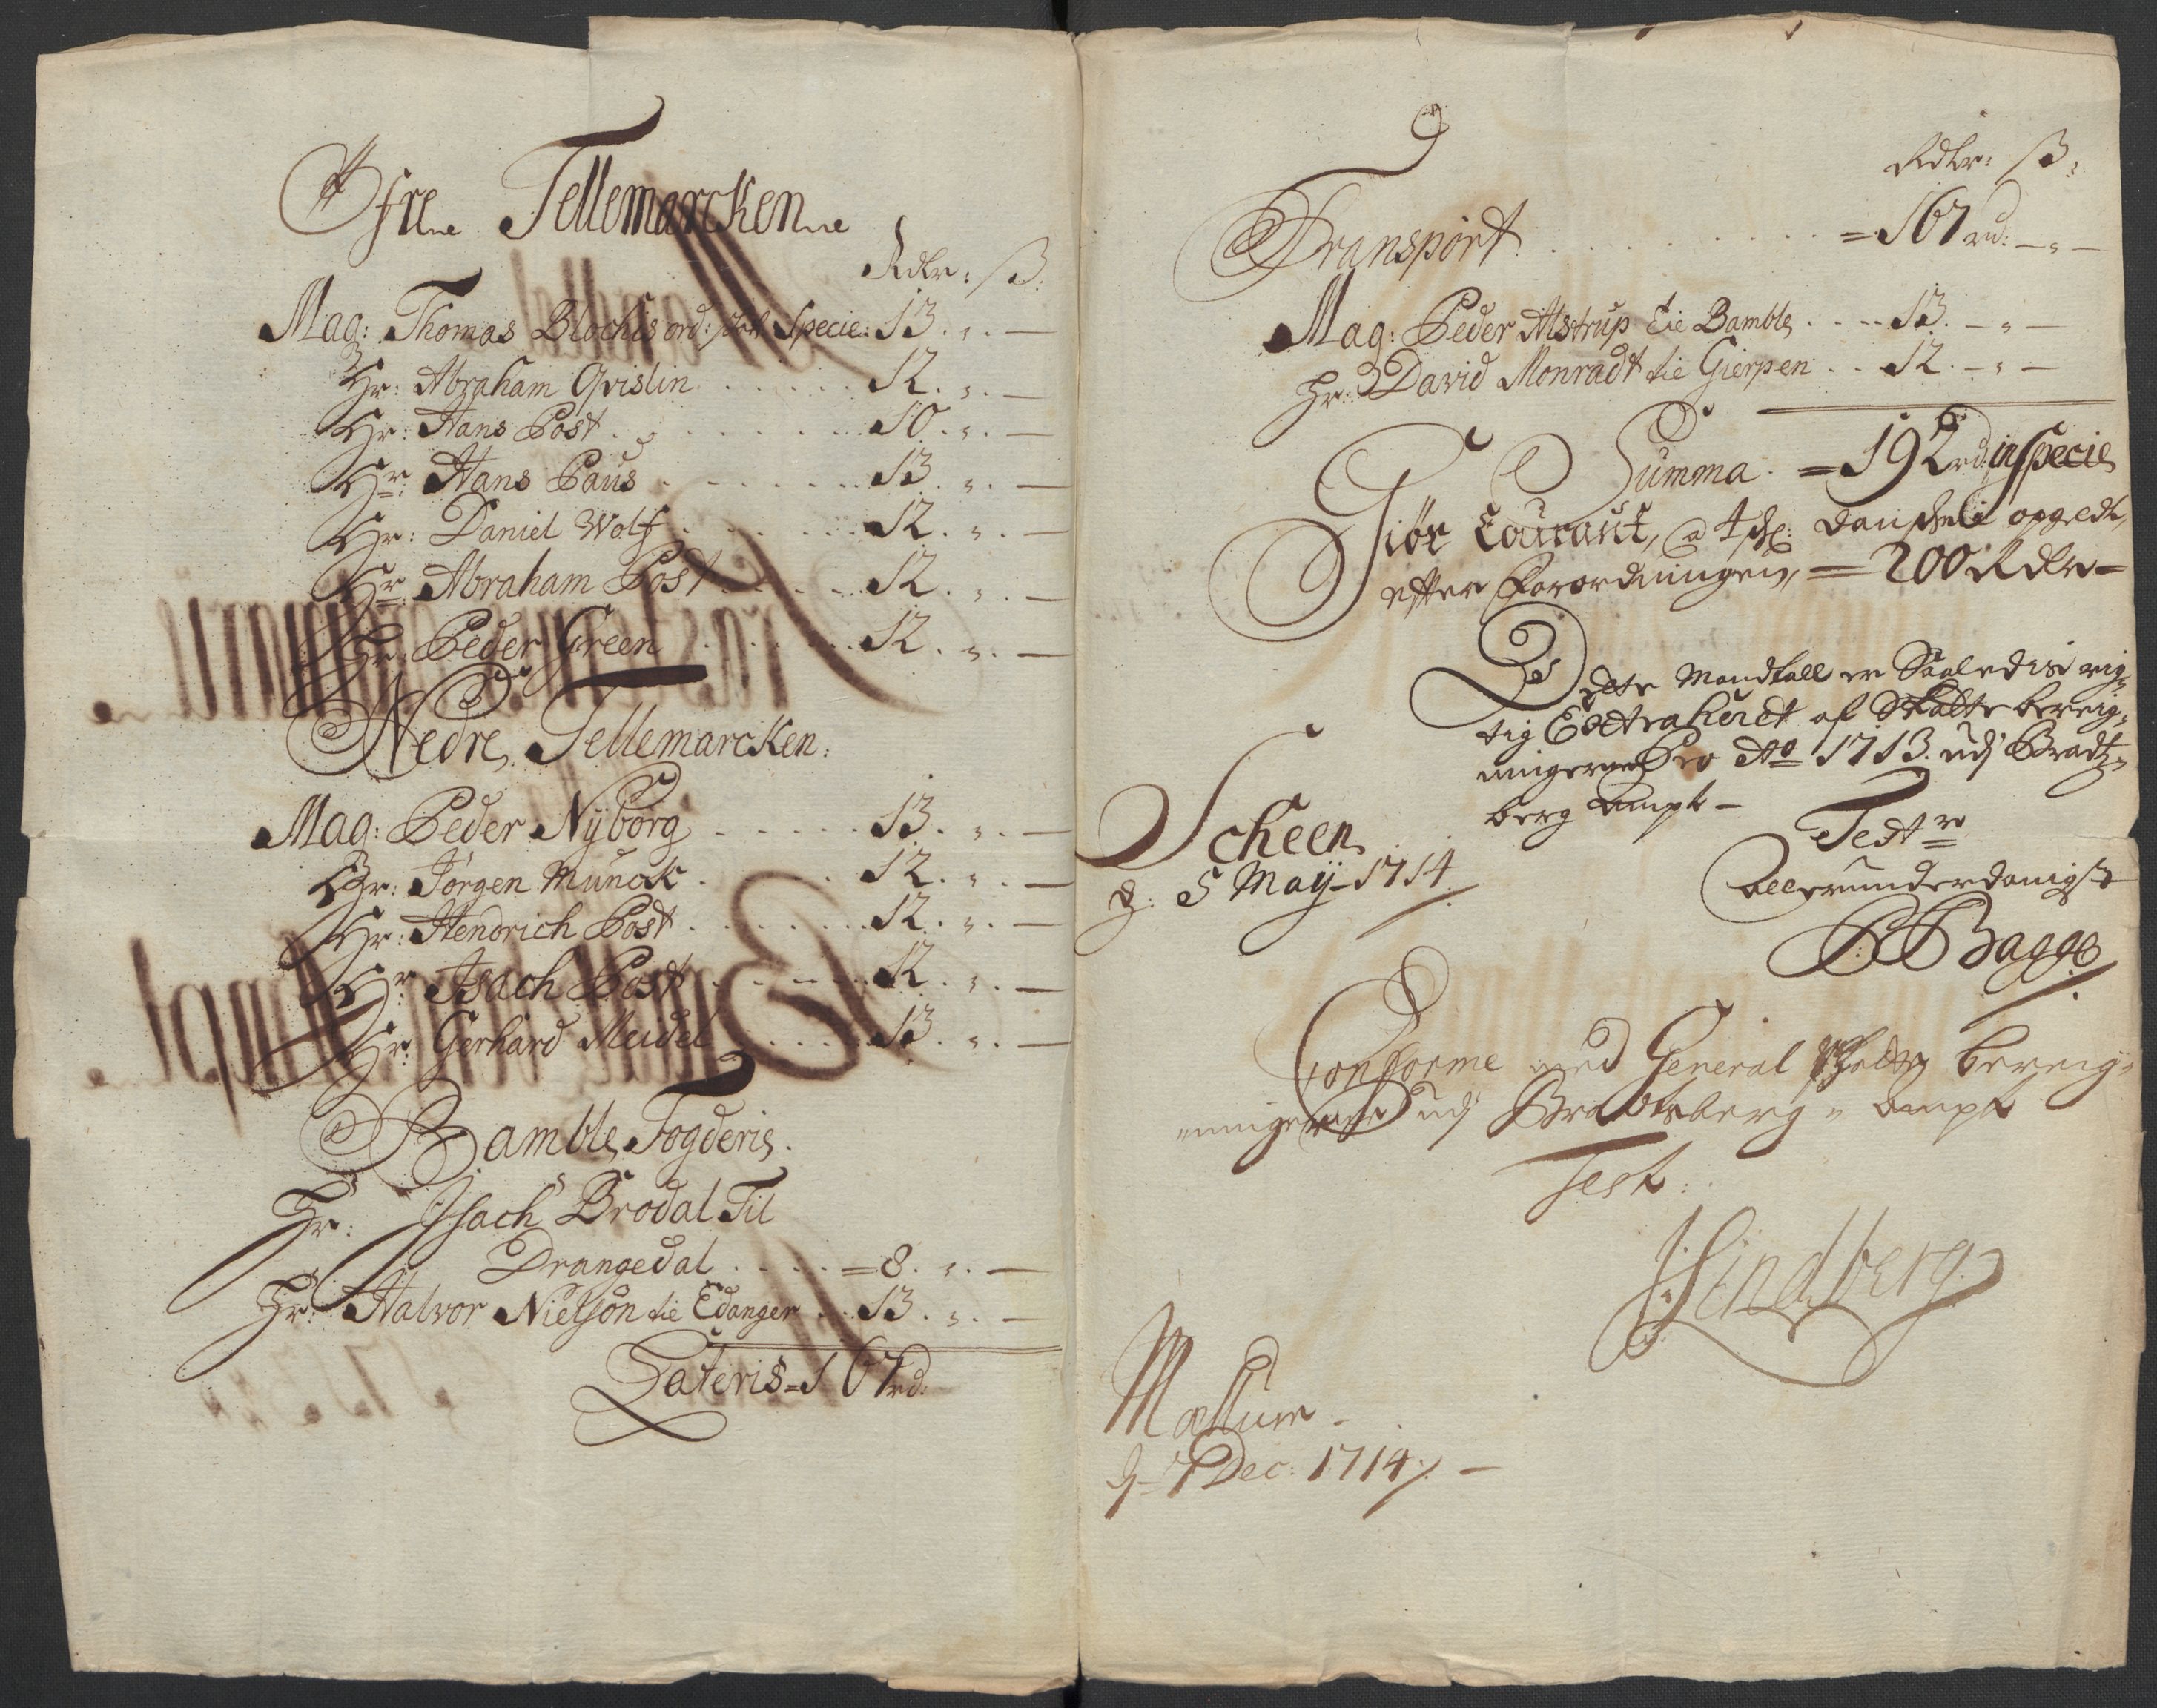 Øfre Tellemarcken
Rdlr: ß:
Mag: Thomas Blochis ord: Specie: 13. „. —
Hr: Abraham Qvislin 12. „. —
Hr: Hans Post 10. „. —
Hr: Hans Paus 13. „. —
Hr: Daniel Wolf 12. „. —
Hr: Abraham Post 12. „. —
Hr: Peder Green 12. „. —
Nedre Tellemarcken:
Mag: Peder Nÿborg 13. „. —
Hr: Jörgen Munck 12. „. —
Hr: Hendrich Post 12. „. —
Hr: Isach Post 12. „. —
Hr: Gerhard Meidel 13. „. —
Bamble Fogderie.
Hr: Isach Brodal Til
Drangedal = 8. „. —
Hr: Halvor Nielson til Edanger 13. „. —
Lateris = 167 rd:
Rdlr: ß:
Transport = 167 rd: — „ —
Mag: Peder Alstrup til Bamble 13. — „ —
Hr: David Monradt til Gierpen 12. — „ —
Summa = 192 rd: in specie
Giör Courant, a 4 danske opgeldt,
efter Forordningen, = 200 Rdlr =
Dette Mandtall er Saaledis rig-
tig Extraheret af Skatte bereig-
ningerne Pro Ao 1713. udj Bradtz-
berg ampt —
Scheen
d: 5 Maÿ 1714
Test
allerunderdanigst
Bagge
Conforme med General Skatte bereig-
ningerne udj Bratsberg ampt
Test:
Lindberg
Mællum
d 7 Dec: 1714 —